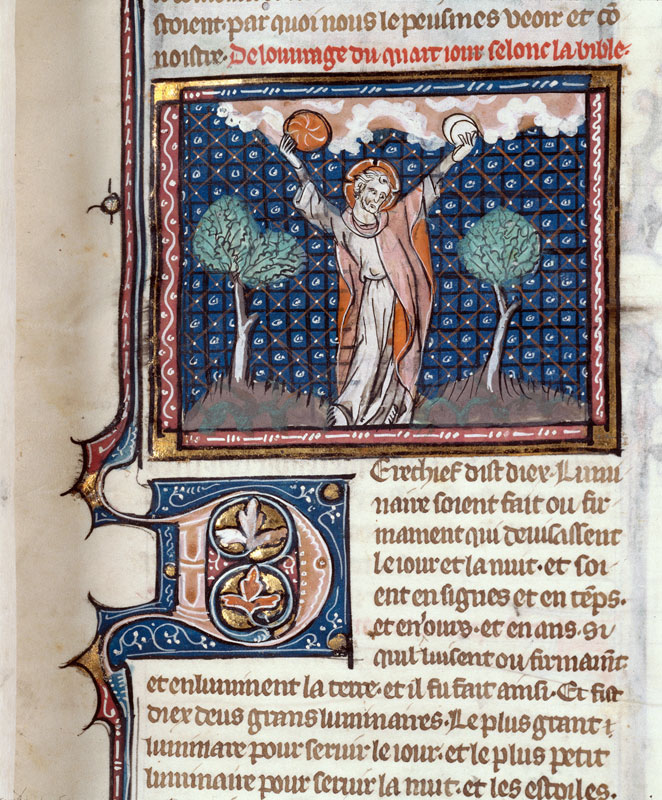 stoient par quoi nous le peusines veoir et cō
noistre. De louurage du quart iour selonc la bible.
Derechief dist diex. Lumi
naire soient fait ou fir
mament qui deuisassent
le iour et la nuit. et soi
ent en signes et en tēps.
et en iours. et en ans. Si
quil luisent ou firmamt
et enluminent la terre. et il fu fait ainsi. Et fist
diex deus grans luminaires. Le plus grant
luminare pour seruir le iour. et le plus petit
luminaire pour seruir la nuit. et les estoiles.